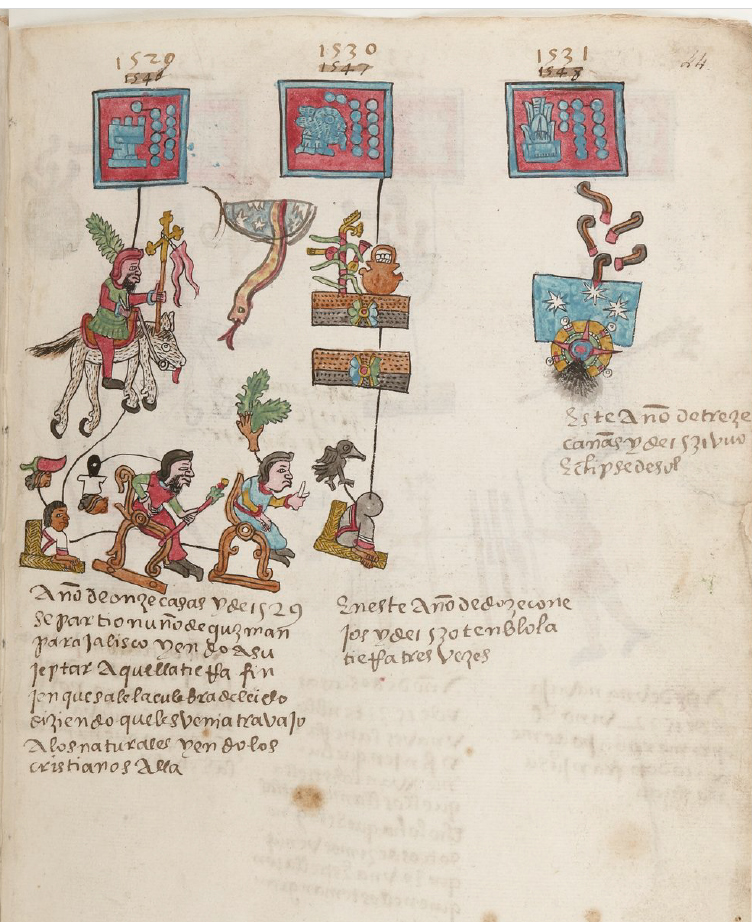 1529
1546
1530
1547
1531
1548
44
Año de onze casas y de 1529
se partio nuño de guzman
para Jalisco yendo a su
jeptar aquella tierra fin
jen que sale la culebra del cielo
diziendo que les venia travajo
A los naturales yendo los
cristianos Alla
En este Año de doze cone
jos y de 1530 tenblo la
tierra tres vezes
Este Año de treze
cañas y de 1531 uvo
Eclipse de sol